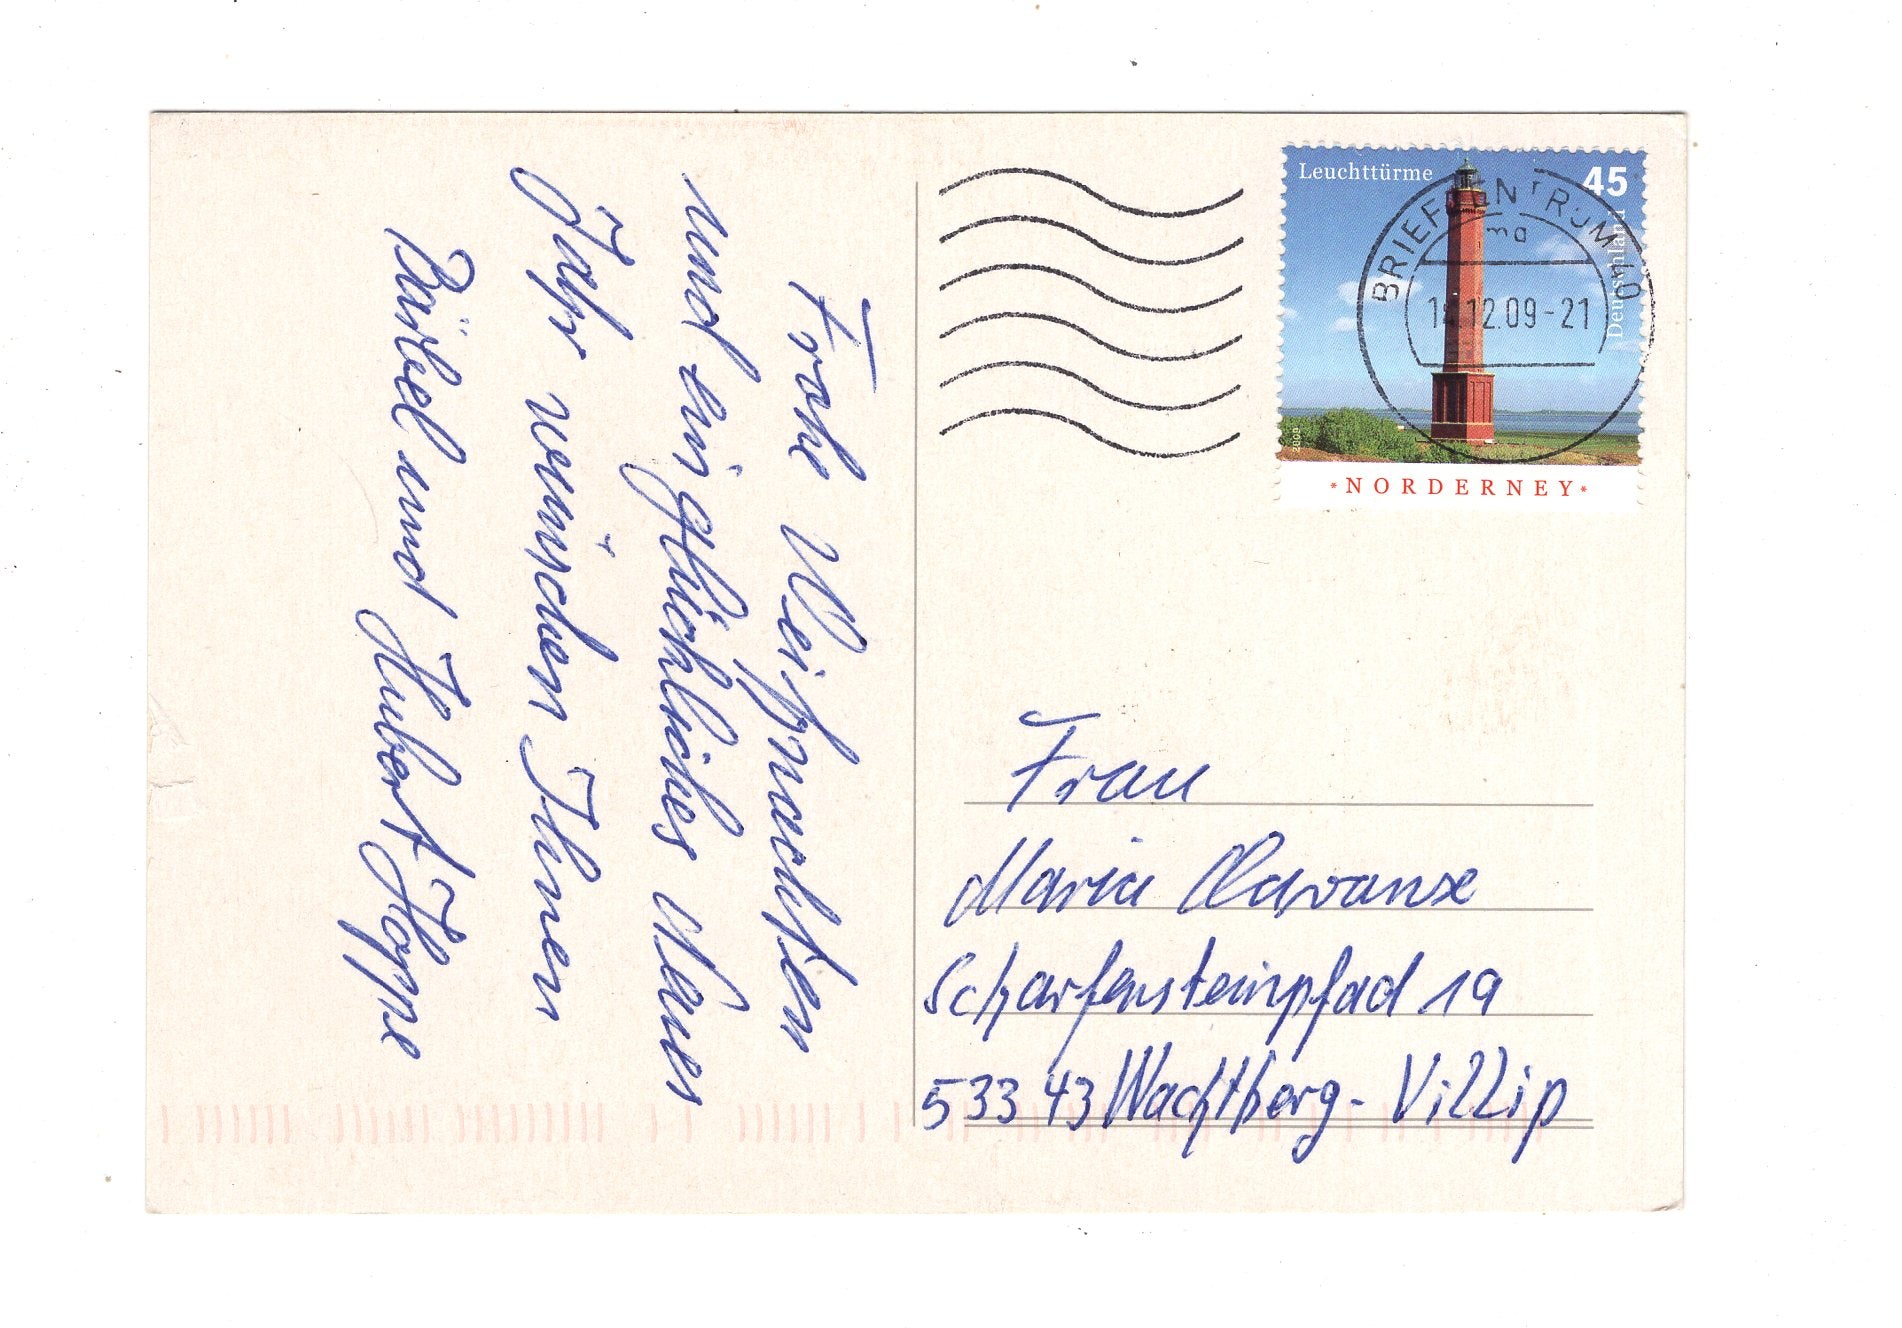 Frohe Weihnachten
und ein glückliches Neues
Jahr wünschen Ihnen
Bärbel und Hubert Hoppe
Leuchttürme
45
Deutschland
2009
*NORDERNEY*
BRIEFZENTRUM 40
ma
14.12.09-21
Frau
Maria
Scharfensteinpfad 19
53343 Wachtberg-Villip